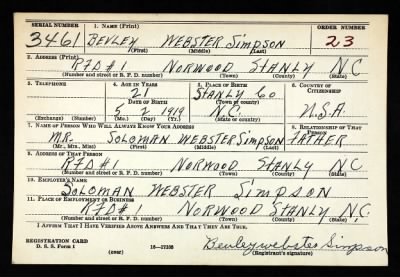 SERIAL NUMBER 1. NAME (Print) ORDER NUMBER
3461 BEVLEY WEBSTER SIMPSON 23
(First) (Middle) (Last)
2. ADDRESS (Print)
RFD#1 NORWOOD STANLY N.C.
(Number and street or R. F. D. number) (Town) (County) (State)
3. TELEPHONE 4. AGE IN YEARS 5. PLACE OF BIRTH 6. COUNTRY OF CITIZENSHIP
21 STANLY CO
DATE OF BIRTH (Town or county)
5 2 1919 N.C. U.S.A.
(Exchange) (Number) (Mo.) (Day) (Yr.) (State or country)
7. NAME OF PERSON WHO WILL ALWAYS KNOW YOUR ADDRESS 8. RELATIONSHIP OF THAT PERSON
MR. SOLOMAN WEBSTER SIMPSON FATHER
(Mr., Mrs., Miss) (First) (Middle) (Last)
9. ADDRESS OF THAT PERSON
RFD#1 NORWOOD STANLY N.C.
(Number and street or R. F. D. number) (Town) (County) (State)
10. EMPLOYER'S NAME
SOLOMAN WEBSTER SIMPSON
11. PLACE OF EMPLOYMENT OR BUSINESS
RFD#1 NORWOOD STANLY N.C.
(Number and street or R. F. D. number) (Town) (County) (State)
I AFFIRM THAT I HAVE VERIFIED ABOVE ANSWERS AND THAT THEY ARE TRUE.
REGISTRATION CARD
D. S. S. Form 1 (over) 16—17105 Bevley webster Simpson
(Registrant's signature)